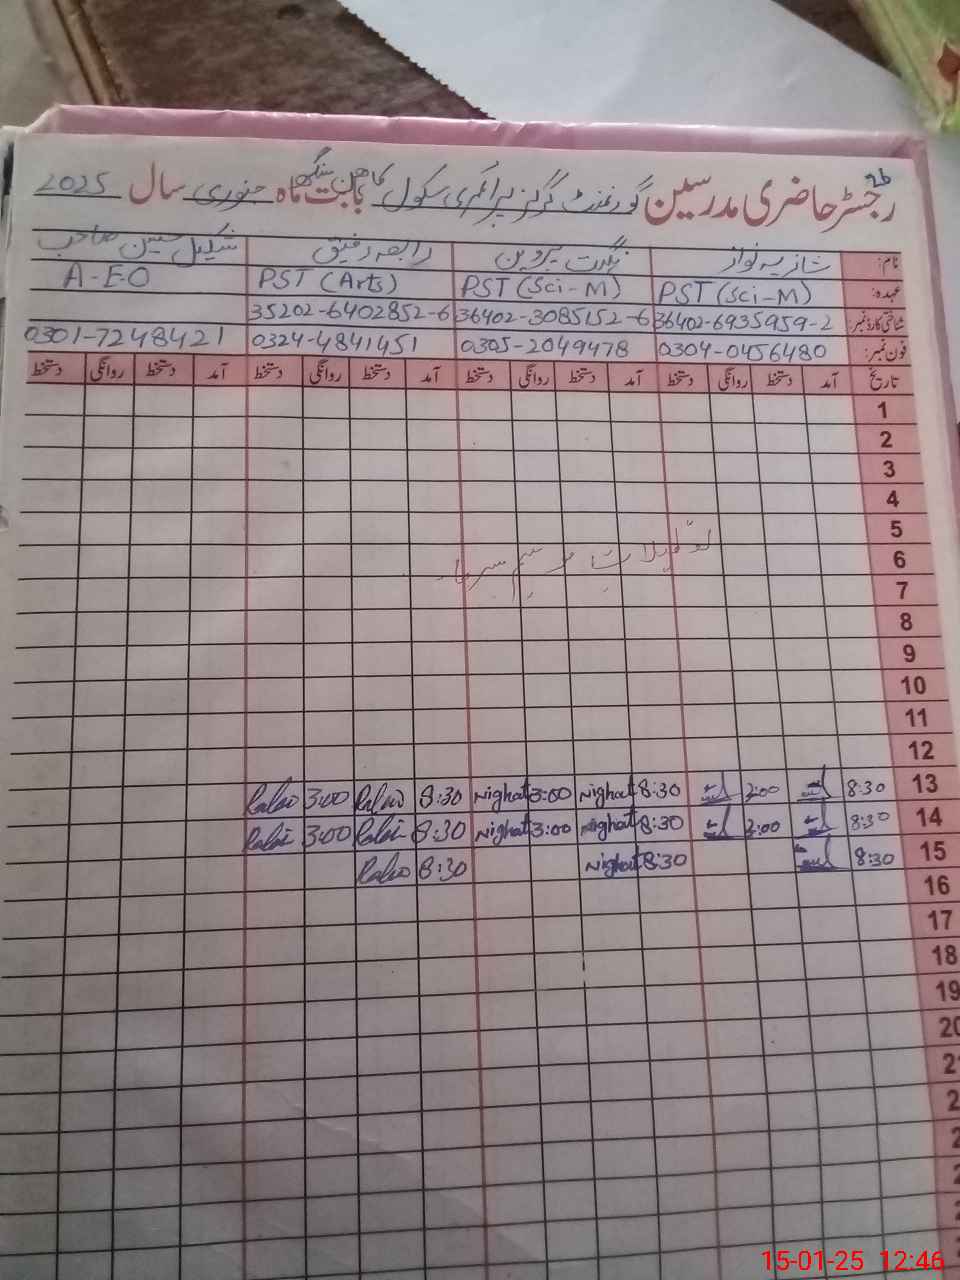 رجسٹر حاضری مدرسین گورنمنٹ گرلز پرائمری سکول بابت ماہ جنوری سال 2025
نام: شازیہ نواز نگہت پروین رابعہ رفیق شکیل حسین صاحب
عہدہ: PST (Sci-M) PST (Sci-M) PST (Arts) A-E-O
شناختی کارڈ نمبر: 36402-6935959-2 36402-3085152-6 35202-6402852-6
فون نمبر: 0304-0456480 0305-2049478 0324-4841451 0301-7248421
تاریخ آمد دستخط روانگی دستخط آمد دستخط روانگی دستخط آمد دستخط روانگی دستخط آمد دستخط روانگی دستخط
1
2
3
4
5
تعطیلات موسم سرما
6
7
8
9
10
11
12
13 8:30 3:00 8:30 Nighat 3:00 Nighat 8:30 3:00
14 8:30 3:00 8:30 Nighat 3:00 Nighat 8:30 3:00
15 8:30 8:30 Nighat 8:30
16
17
18
19
20
15-01-25 12:46